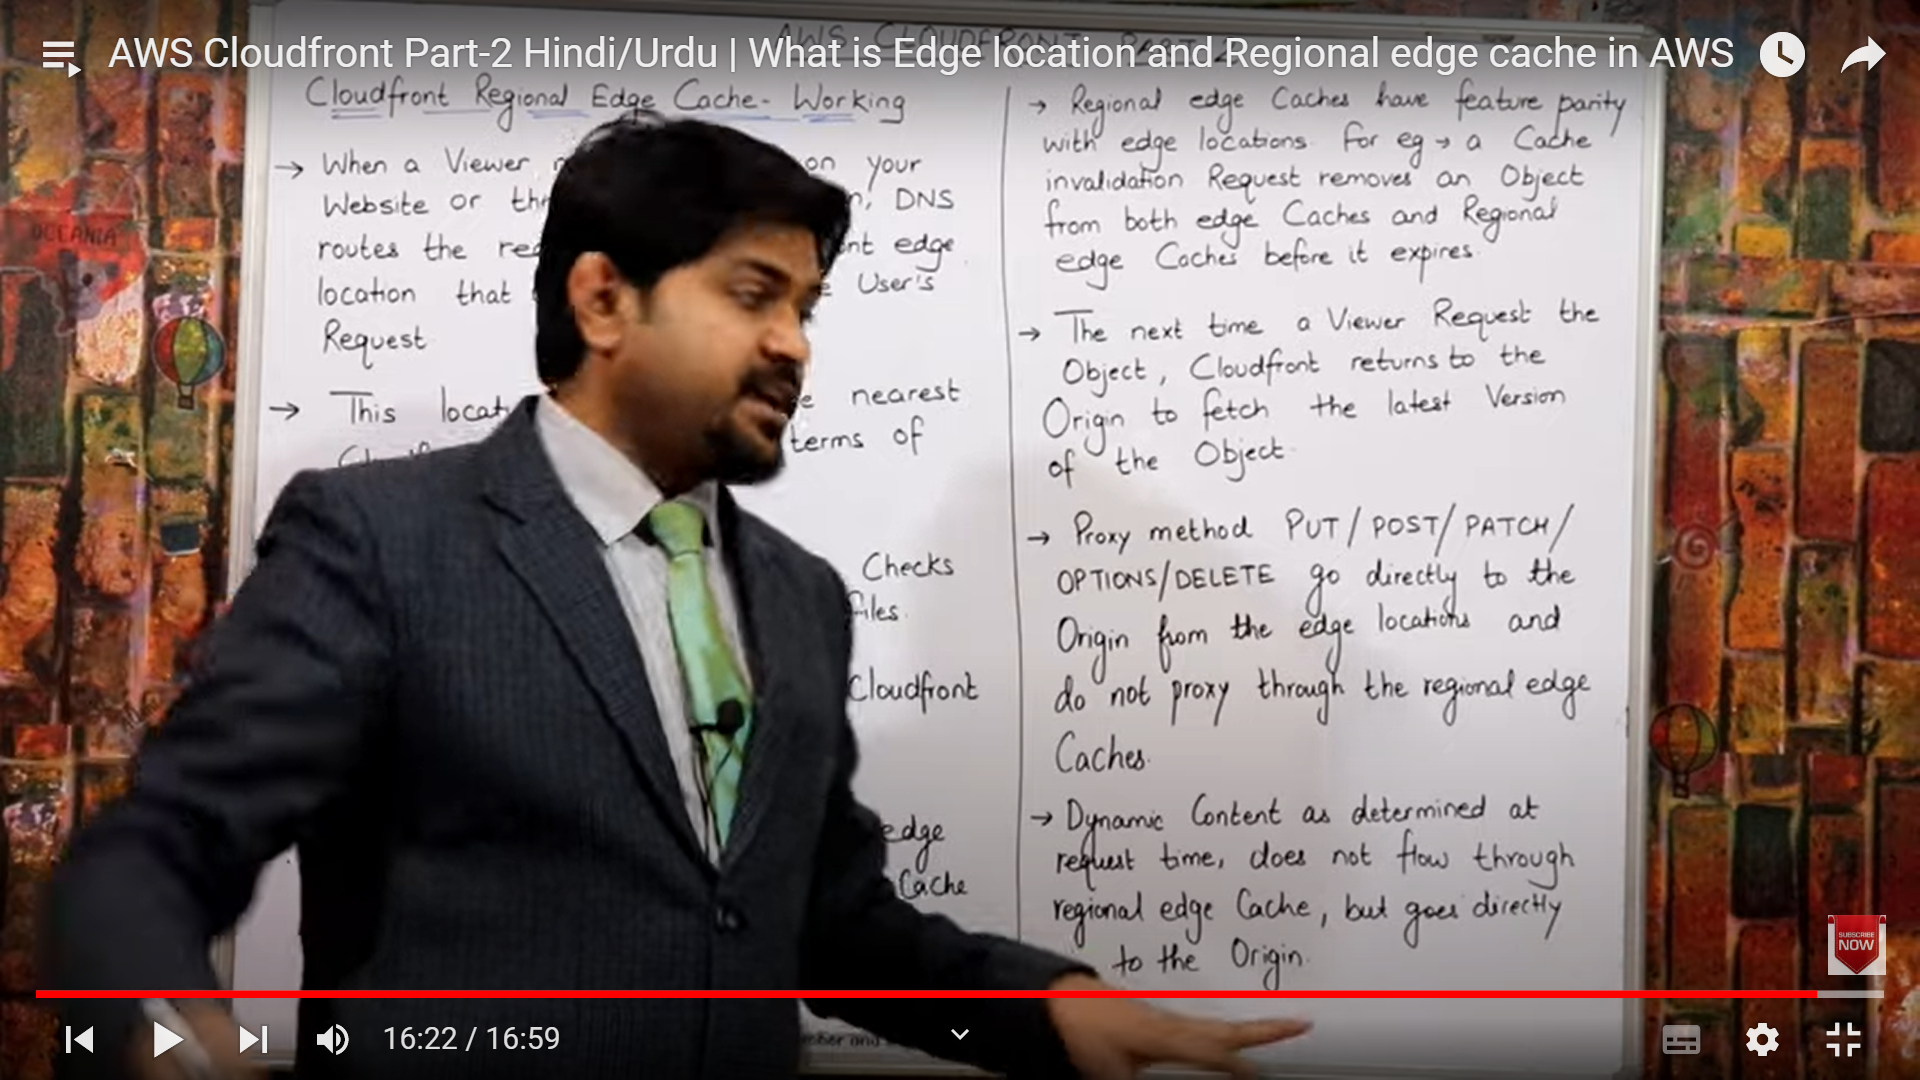 AWS Cloudfront Part-2 Hindi/Urdu | What is Edge location and Regional edge cache in AWS
AWS CLOUDFRONT PART 2
Cloudfront Regional Edge Cache - Working
→ When a Viewer on your
Website or DNS
routes the edge
location that User's
Request
→ This nearest
terms of
Checks
files.
Cloudfront
edge
Cache
→ Regional edge Caches have feature parity
with edge locations. For eg → a Cache
invalidation Request removes an Object
from both edge Caches and Regional
edge Caches before it expires.
→ The next time a Viewer Request the
Object, Cloudfront returns to the
Origin to fetch the latest Version
of the Object.
→ Proxy method PUT/POST/PATCH/
OPTIONS/DELETE go directly to the
Origin from the edge locations and
do not proxy through the regional edge
Caches.
→ Dynamic Content as determined at
request time, does not flow through
regional edge Cache, but goes directly
to the Origin.
OCEANIA
SUBSCRIBE
NOW
16:22 / 16:59